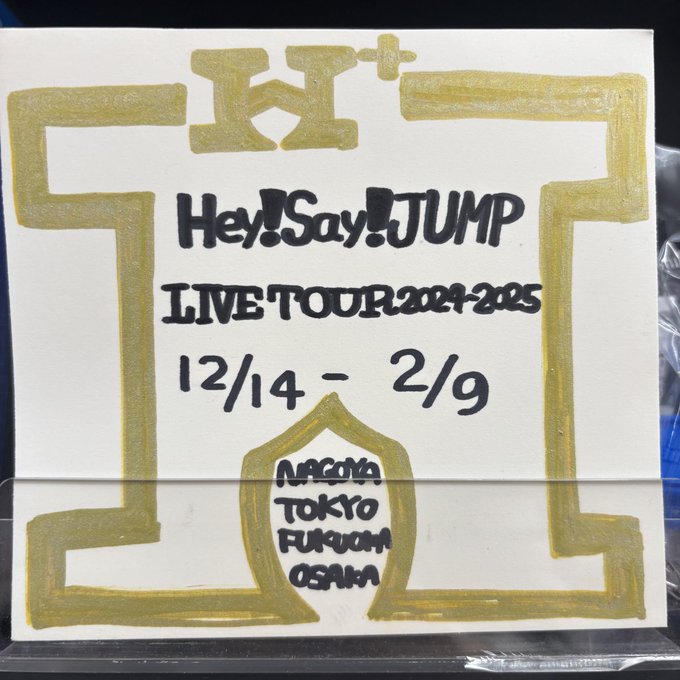 H+
Hey!Say!JUMP
LIVE TOUR 2024-2025
12/14 - 2/9
NAGOYA
TOKYO
FUKUOKA
OSAKA